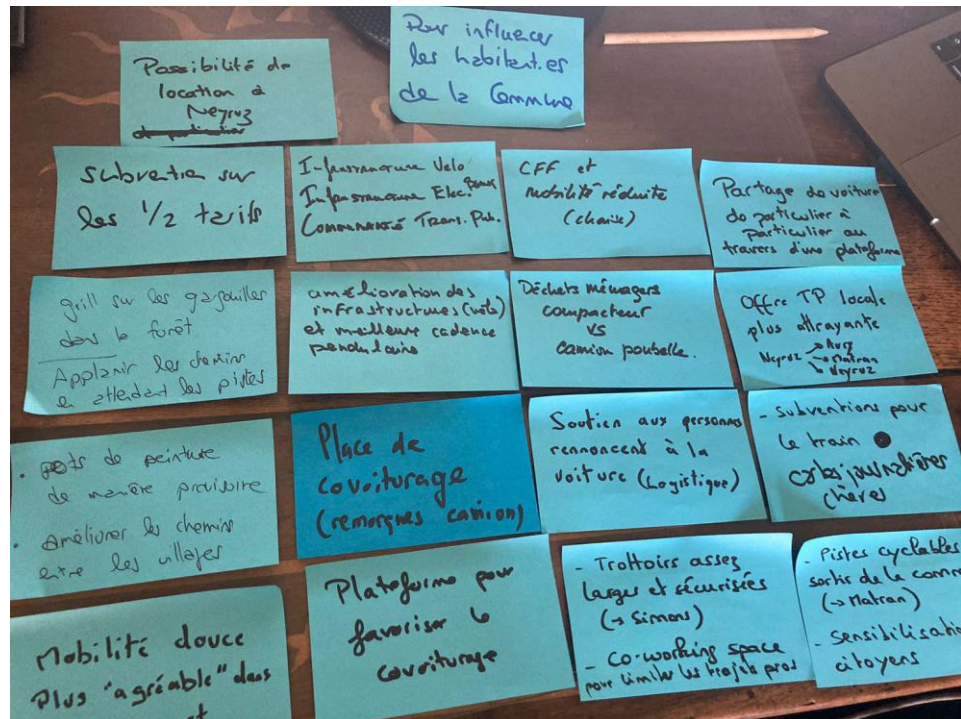 Possibilité de
location à
Neyruz
de particulier
Pour influencer
les habitant.es
de la Commune
Subvention sur
les 1/2 tarifs
Infrastructure Velo
Infrastructure Elec. pour
Communauté Trans. Pub.
CFF et
mobilité réduite
(chaise)
Partage de voiture
de particulier à
particulier au
travers d'une plateforme
grill sur les gargouilles
dans la forêt
Applanir les chemins
en attendant les pistes
amélioration des
infrastructures (vélo)
et meilleure cadence
pendulaire
Déchets ménagers
compacteur
vs
camion poubelle.
Offre TP locale
plus attrayante
Neyruz → Avry
→ Matran
→ Neyruz
• pots de peinture
de manière provisoire
• améliorer les chemins
entre les villages
Place de
covoiturage
(remorques camion)
Soutien aux personnes
rennoncent à la
voiture (Logistique)
- subventions pour
le train
cartes journalières
chères
Mobilité douce
Plus "agréable" dans
Plateforme pour
favoriser le
covoiturage
- Trottoirs assez
larges et sécurisées
(→ Simons)
- Co-working space
pour limiter les trajets pros
- Pistes cyclables
sortir de la comm
(→ Matran)
- Sensibilisatio
citoyens